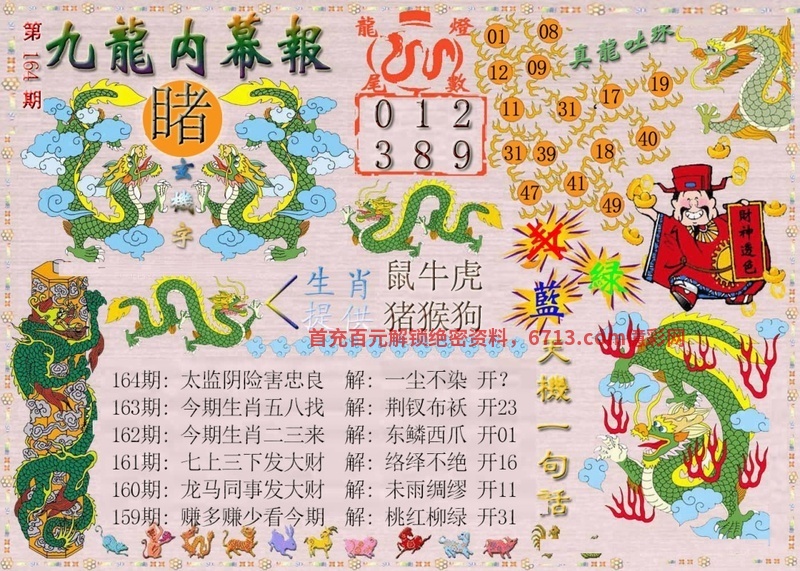 第164期
九龍内幕報
睹
玄機字
龍燈
尾數
0 1 2
3 8 9
真龍吐珠
01 08
12 09
11 31 17 19
31 39 18 40
47 41 49
財神透色
绿
藍
生肖
提供
鼠牛虎
猪猴狗
首充百元解锁绝密资料，6713.com
天機一句話
164期: 太监阴险害忠良 解: 一尘不染 开?
163期: 今期生肖五八找 解: 荆钗布袄 开23
162期: 今期生肖二三来 解: 东鳞西爪 开01
161期: 七上三下发大财 解: 络绎不绝 开16
160期: 龙马同事发大财 解: 未雨绸缪 开11
159期: 赚多赚少看今期 解: 桃红柳绿 开31